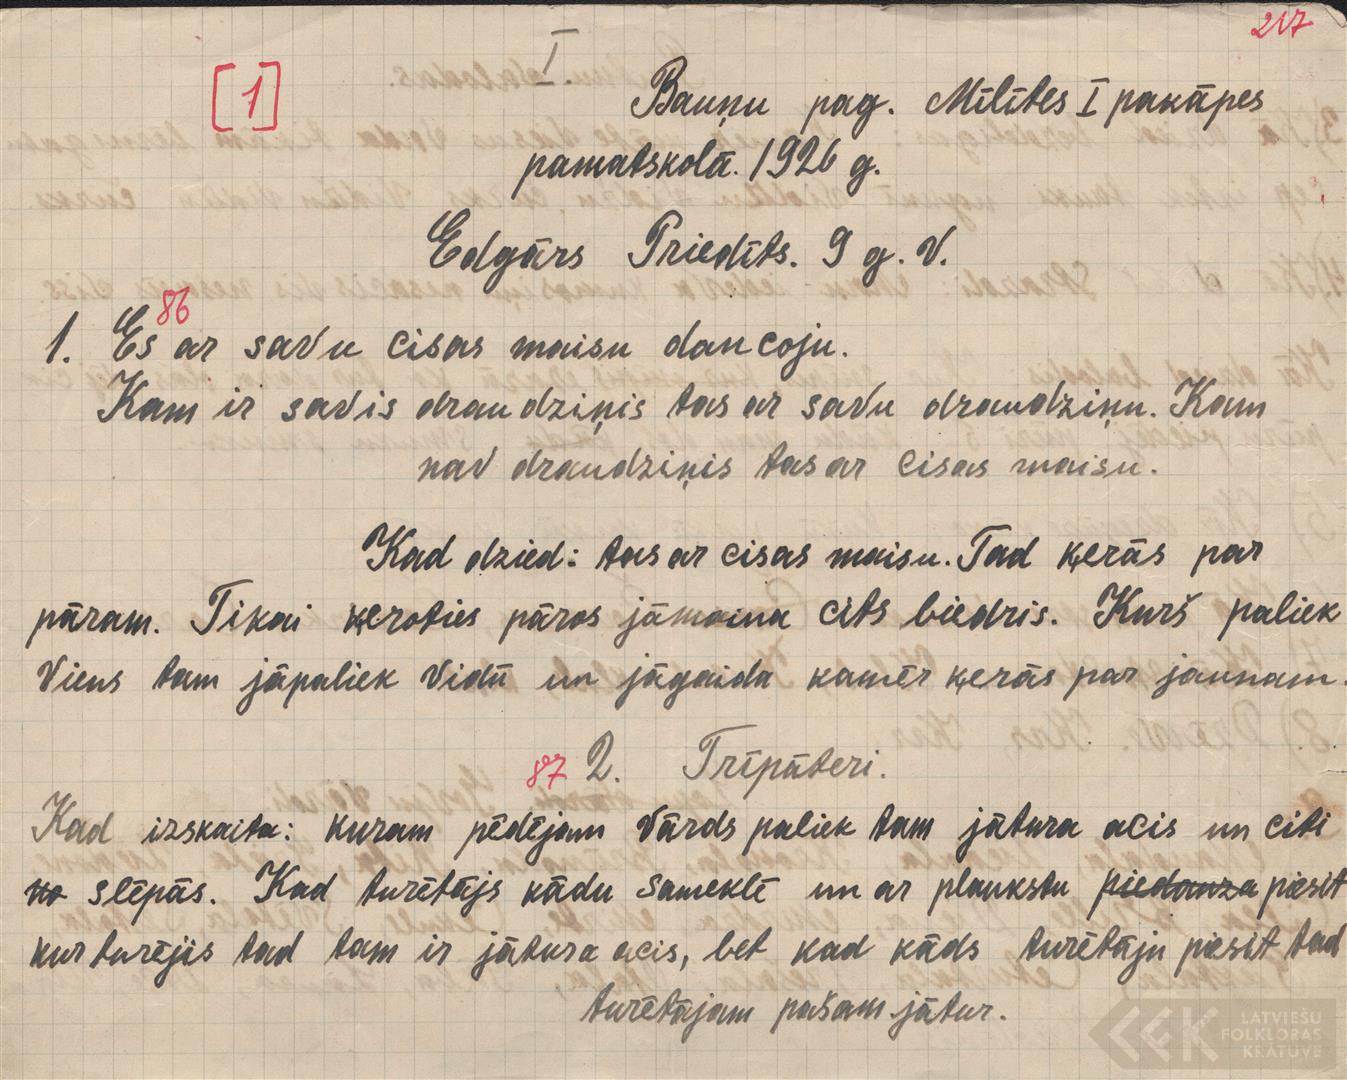 217
I.
[1]
Bauņu pag. Mīlītes I pakāpes
pamatskolā. 1926 g.
Edgārs Priedīts. 9 g. v.
86
1. Es ar savu cisas maisu dancoju.
Kam ir savis draudziņis tas ar savu draudziņu. Kam
nav draudziņis tas ar cisas maisu.
Kad dzied: tas ar cisas maisu. Tad ķerās par
pāram. Tikai ķeroties pāros jāmaina cits biedris. Kurš paliek
Viens tam jāpaliek Vidū un jāgaida kamēr ķerās par jaunam.
87 2. Trīpāteri.
Kad izskaita: kuram pēdējam Vārds paliek tam jātura acis un citi
no slēpās. Kad turētājs kādu sameklē un ar plaukstu piedauza piesit
kur turējis tad tam ir jātura acis, bet kad kāds turētāju piesit tad
turētājam pašam jātur.
LATVIEŠU
FOLKLORAS
KRĀTUVE